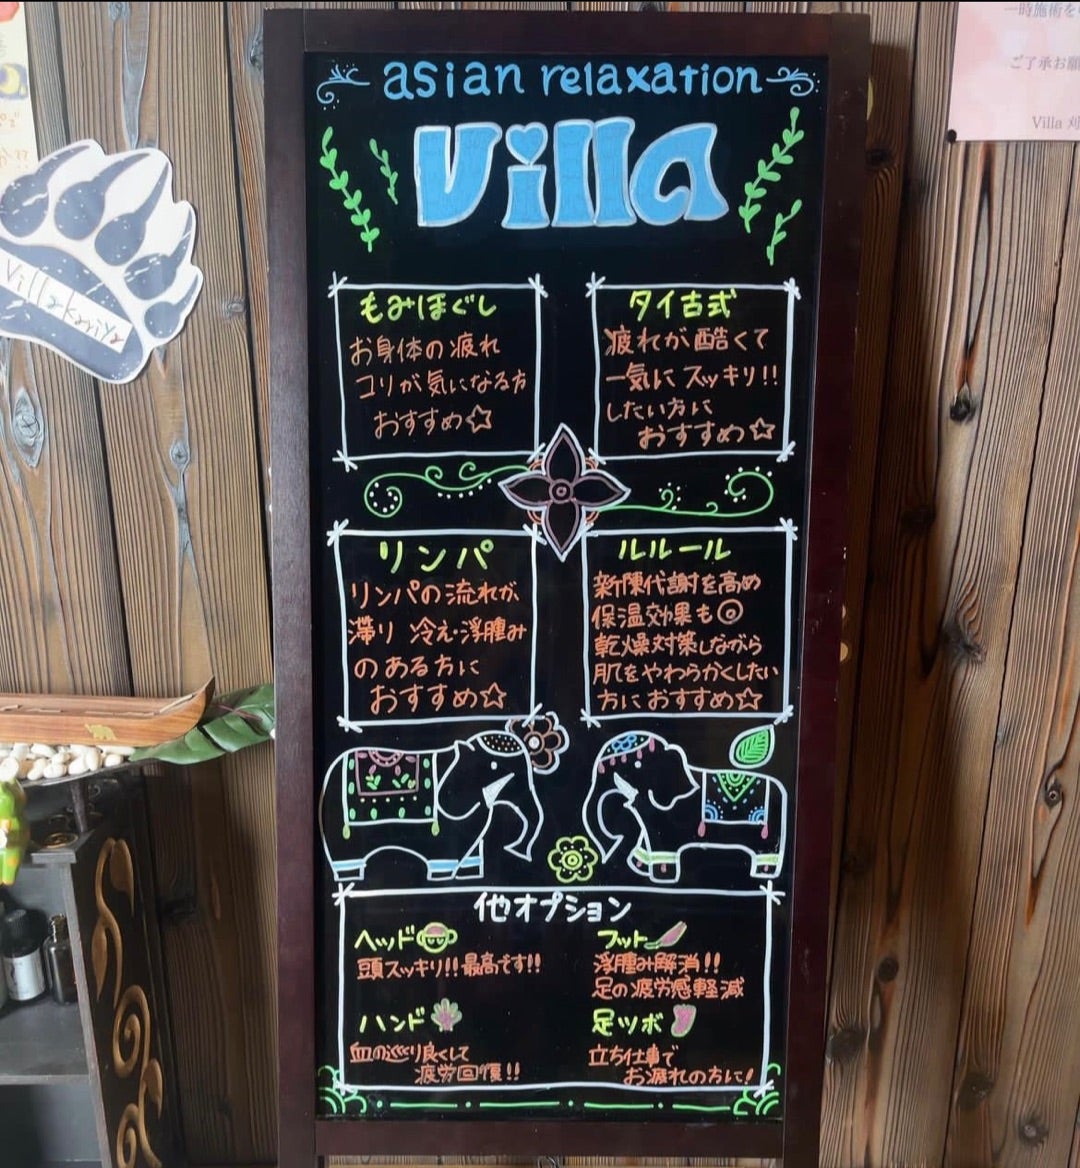 asian relaxation
Villa
もみほぐし
お身体の疲れ
コリが気になる方
おすすめ☆
タイ古式
疲れが酷くて
一気にスッキリ!!
したい方に
おすすめ☆
リンパ
リンパの流れが
滞り 冷え・浮腫み
のある方に
おすすめ☆
ルルール
新陳代謝を高め
保温効果も◎
乾燥対策しながら
肌をやわらかくしたい
方におすすめ☆
他オプション
ヘッド
頭スッキリ!!最高です!!
フット
浮腫み解消!!
足の疲労感軽減
ハンド
血の巡り良くして
疲労回復!!
足ツボ
立ち仕事で
お疲れの方に!
Villa kariya
一時施術を
ご了承お願
Villa 刈